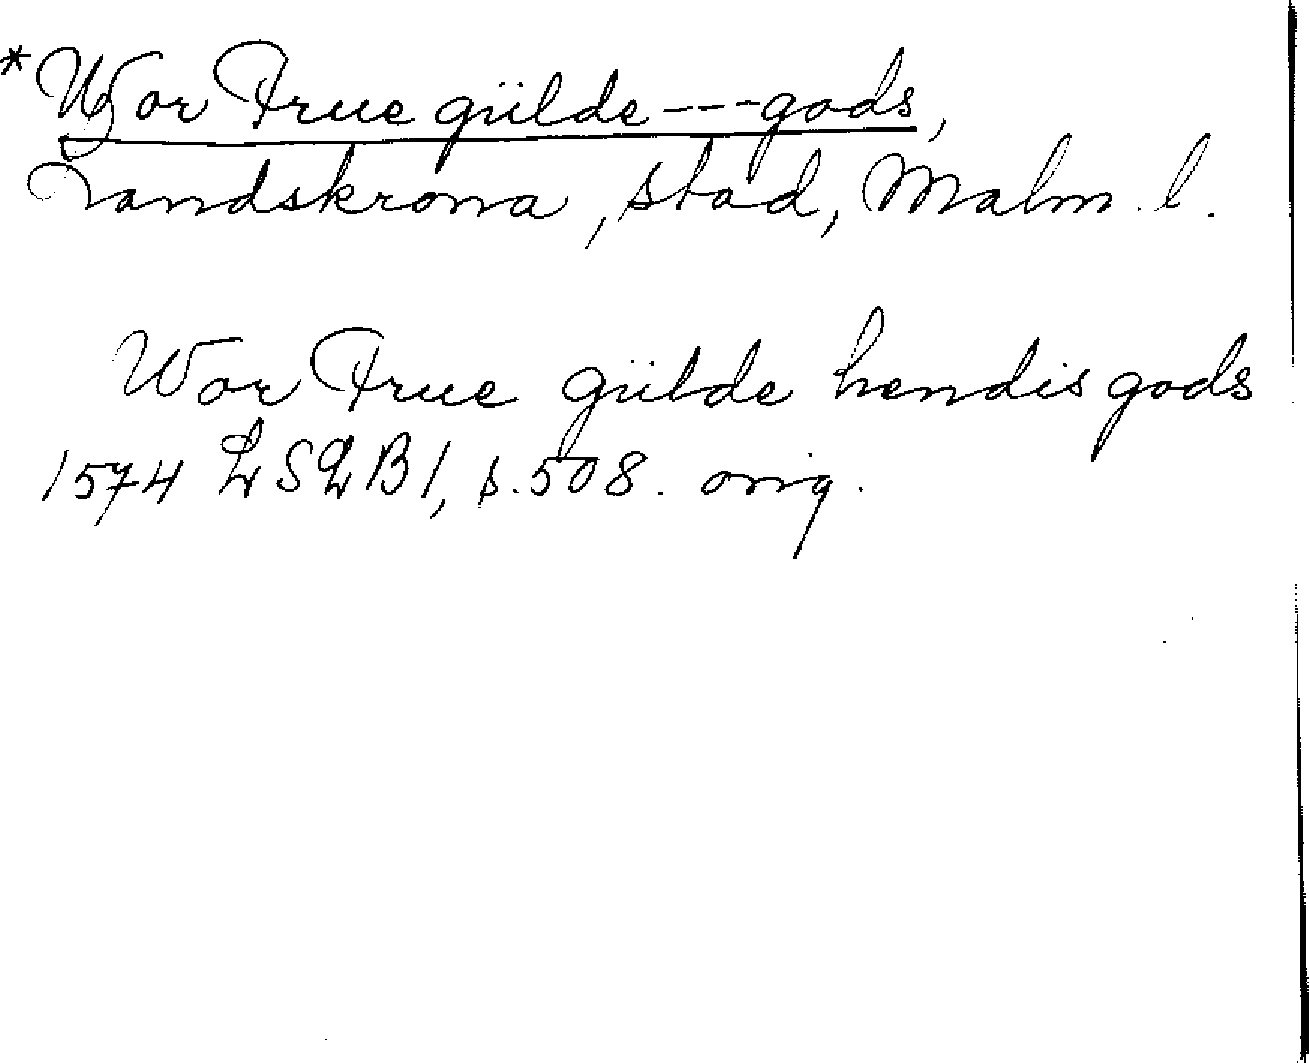 *Wor Frue gülde---gods,
Landskrona, stad, Malm. l.
Wor Frue gülde hendis gods
1574 LSLB1, s. 508. orig.